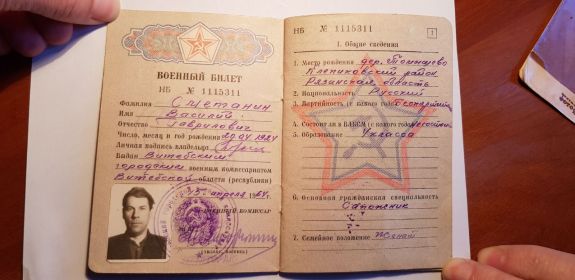 ВОЕННЫЙ БИЛЕТ
НБ № 1115311
Фамилия Сметанин
Имя Василий
Отчество Гаврилович
Число, месяц и год рождения 20.04.1924
Личная подпись владельца
Выдан Витебским
городским военным комиссариатом
Витебской области (республики)
15 апреля 1964 г.
ВОЕННЫЙ КОМИССАР
НБ № 1115311
1
I. Общие сведения
1. Место рождения дер.
Клепиковский район
Рязанская область
2. Национальность Русский
3. Партийность (с какого года) беспартийн
4. Состоит ли в ВЛКСМ (с какого года) не состоит
5. Образование 4 класса
6. Основная гражданская специальность
Сапожник
7. Семейное положение Женат